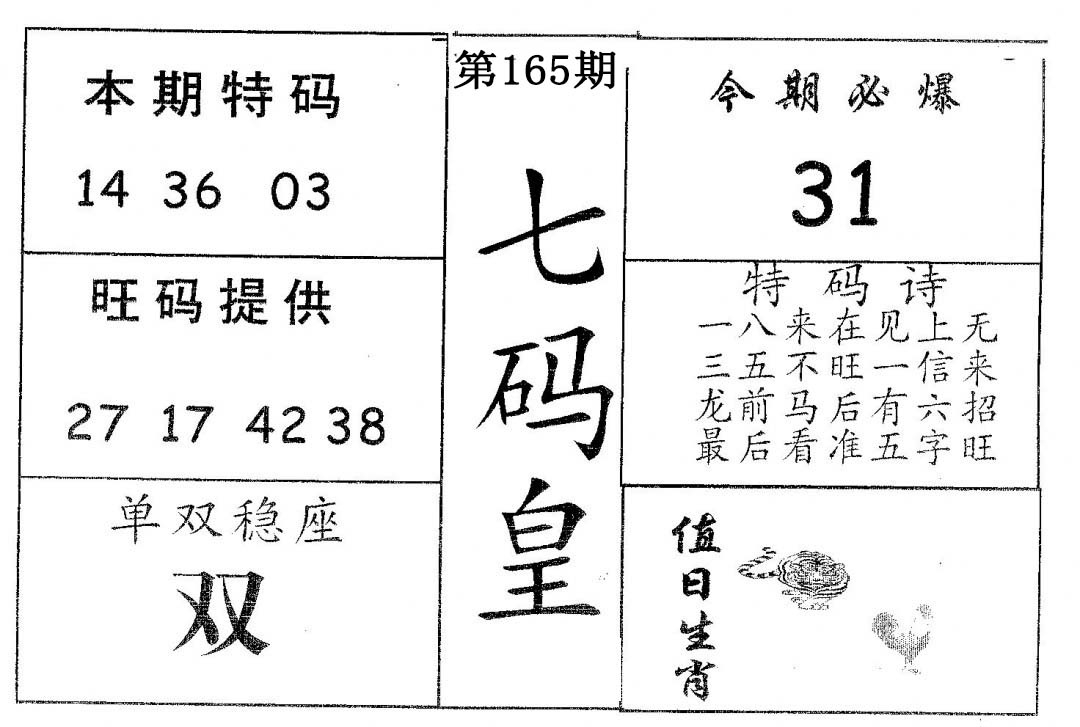 本期特码
14 36 03
旺码提供
27 17 42 38
单双稳座
双
第165期
七码皇
今期必爆
31
特码诗
一八来在见上无
三五不旺一信来
龙前马后有六招
最后看准五字旺
值日生肖